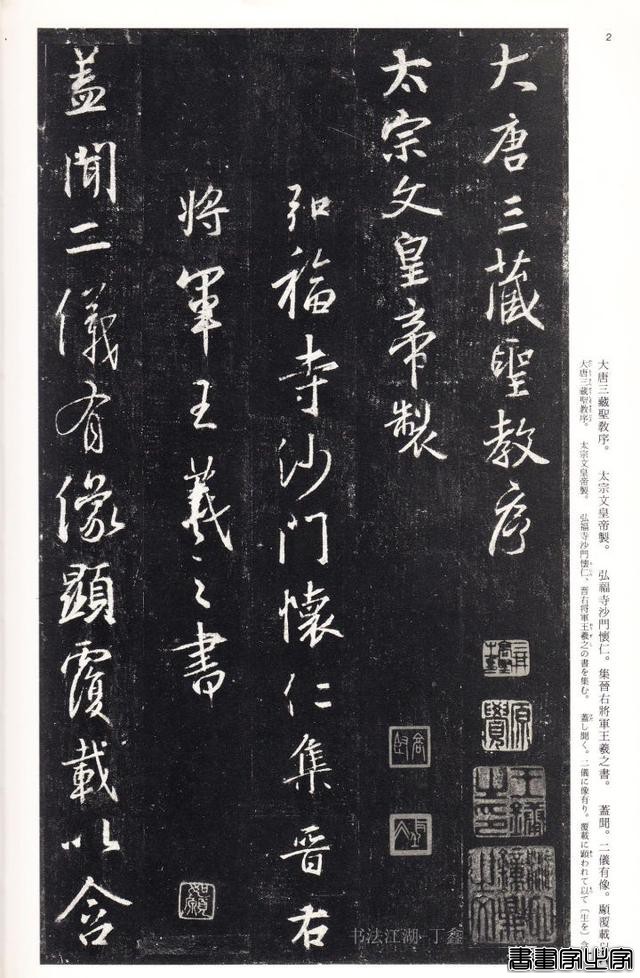 2
大唐三藏聖教序
太宗文皇帝製
弘福寺沙門懷仁集晉右
將軍王羲之書
蓋聞二儀有像顯覆載以含
大唐三藏聖敎序。 太宗文皇帝製。 弘福寺沙門懷仁。集晉右將軍王羲之書。 蓋聞。二儀有像。顯覆載以
大唐三藏聖敎序。 太宗文皇帝製。 弘福寺沙門懷仁、晉右將軍王羲之の書を集む。 蓋し聞く。二儀に像有り。覆載に顕われて以て〔生を〕含
如願
书法江湖·丁鑫
書畫家必家